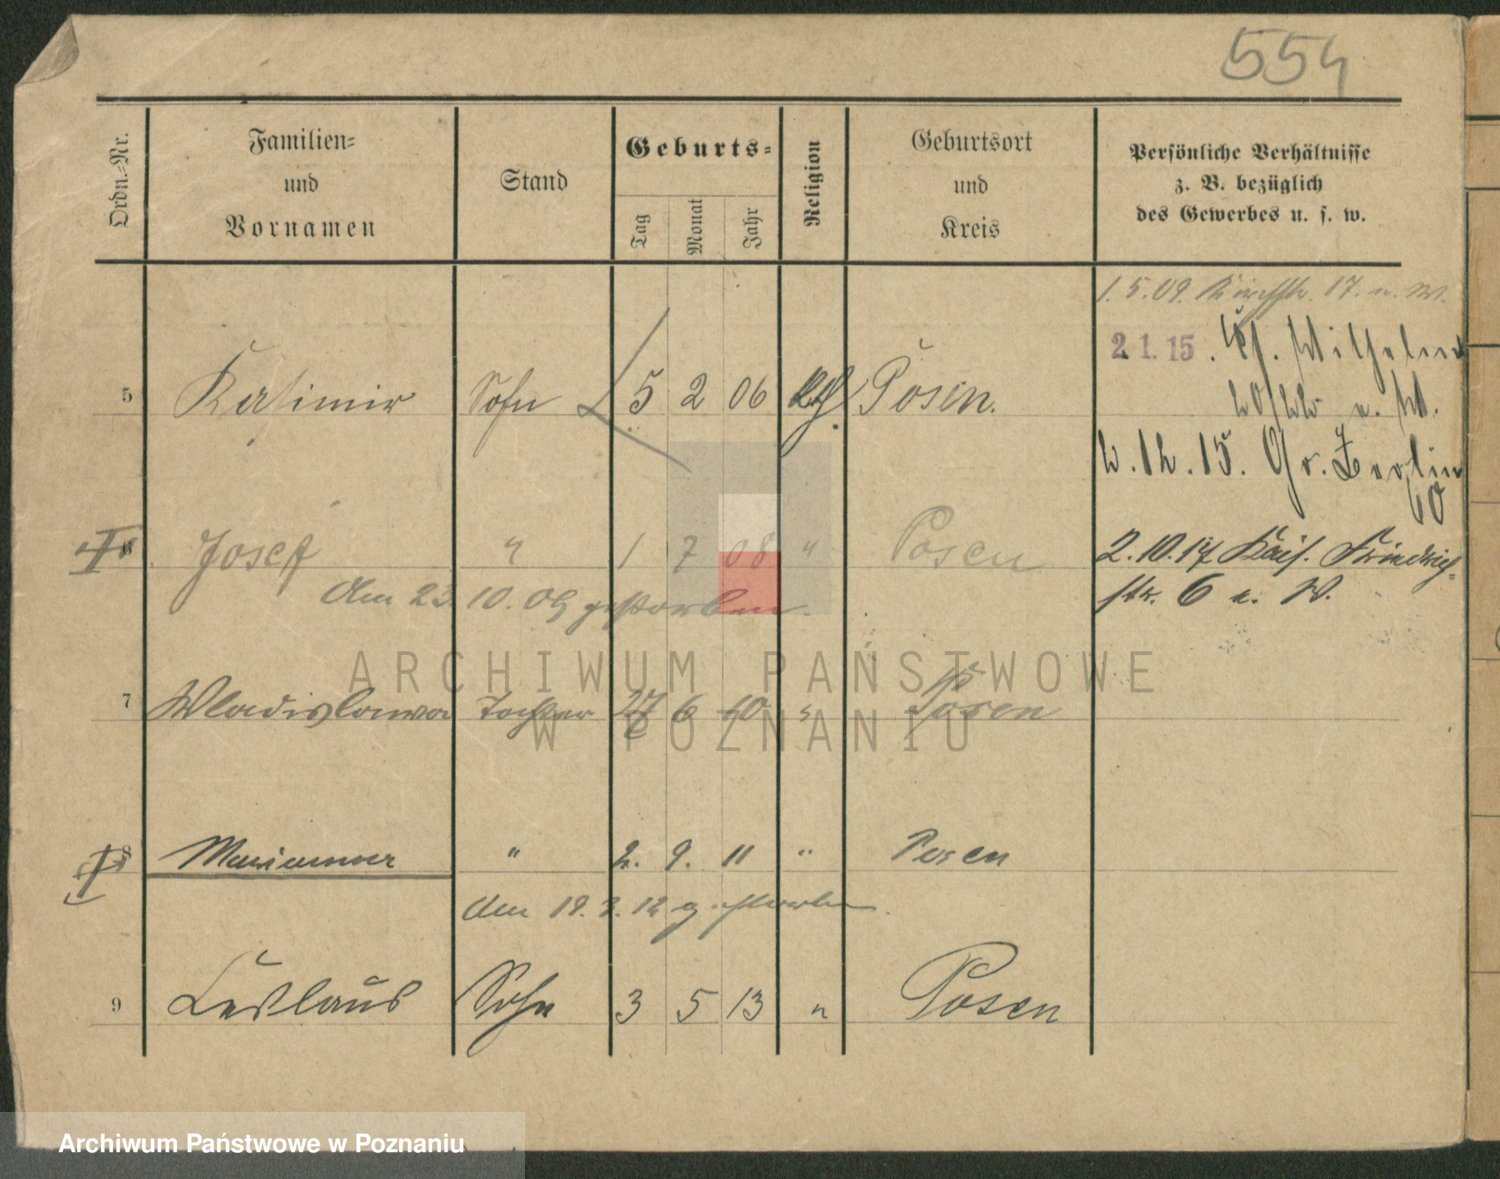 554
Ordn.-Nr.
Familien-
und
Vornamen
Stand
Geburts-
Tag
Monat
Jahr
Religion
Geburtsort
und
Kreis
Persönliche Verhältnisse
z. B. bezüglich
des Gewerbes u. s. w.
1.5.09. 17. u. W.
2.1.15. Wilhelm
u. W.
5 Kasimir Sohn 5 2 06 Posen.
2.12.15. Gr. Berlin
60
6 Josef " 1 7 08 " Posen
2.10.17 Kais. Friedrich-
Am 23.10.09 gestorben.
str. 6 u. W.
ARCHIWUM PAŃSTWOWE
7 Wladislawa Tochter 27 6 10 " Posen
W POZNANIU
8 Marianna " 2. 9. 11 " Posen
Am 19.3.12 gestorben.
9 Leslaus Sohn 3 5 13 " Posen
Archiwum Państwowe w Poznaniu